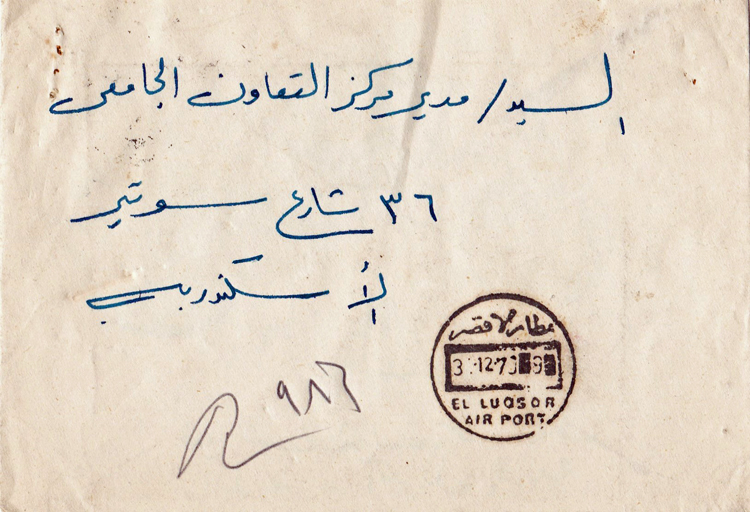 السيد / مدير مركز التعاون الجامعى
٣٦ شارع سوتير
الأسكندرية
R ٩٨٣
مطار الاقصر
12.7
EL LUQSOR
AIR PORT